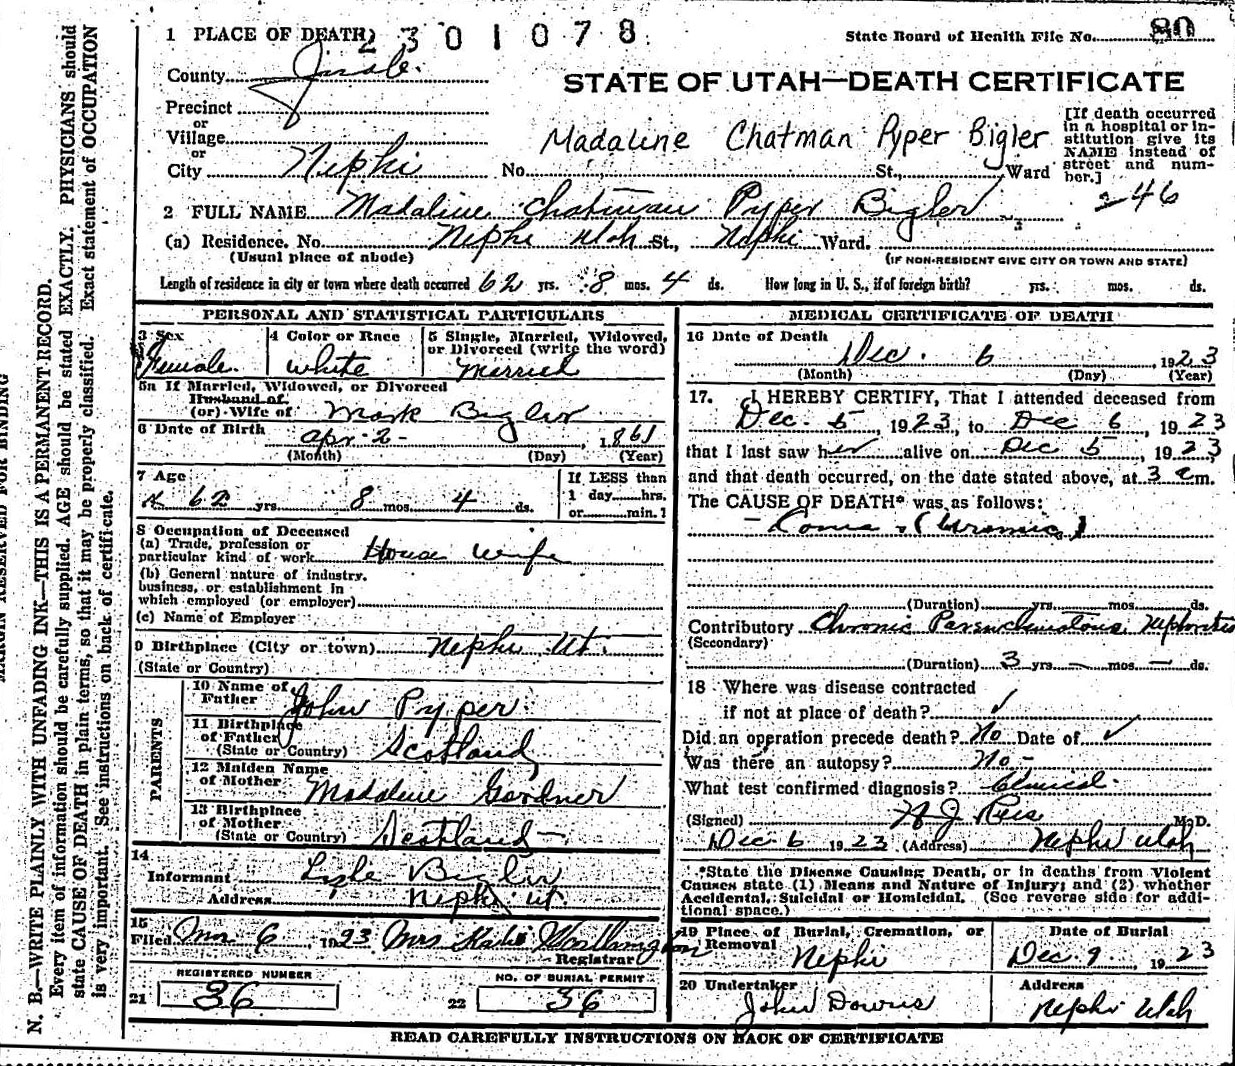 1 PLACE OF DEATH 2301078
State Board of Health File No. 80
County Juab.
STATE OF UTAH—DEATH CERTIFICATE
Precinct
or
Village
or
City Nephi No. St., Ward
Madaline Chatman Pyper Bigler
[If death occurred
in a hospital or in-
stitution give its
NAME instead of
street and num-
ber.]
246
2 FULL NAME Madaline Chatman Pyper Bigler
(a) Residence. No. Nephi Utah St., Nephi Ward.
(Usual place of abode) (IF NON-RESIDENT GIVE CITY OR TOWN AND STATE)
Length of residence in city or town where death occurred 62 yrs. 8 mos. 4 ds. How long in U. S., if of foreign birth? yrs. mos. ds.
PERSONAL AND STATISTICAL PARTICULARS
3 Sex Female.
4 Color or Race white
5 Single, Married, Widowed,
or Divorced (write the word)
Married
5a If Married, Widowed, or Divorced
Husband of
(or) Wife of Mark Bigler
6 Date of Birth Apr - 2 -, 1861
(Month) (Day) (Year)
7 Age
62 yrs. 8 mos. 4 ds.
If LESS than
1 day hrs.
or min. ?
8 Occupation of Deceased
(a) Trade, profession or
particular kind of work House wife
(b) General nature of industry,
business, or establishment in
which employed (or employer)
(c) Name of Employer
9 Birthplace (City or town) Nephi Ut.
(State or Country)
PARENTS
10 Name of
Father John Pyper
11 Birthplace
of Father
(State or Country) Scotland
12 Maiden Name
of Mother Madaline Gardner
13 Birthplace
of Mother
(State or Country) Scotland
14
Informant Lyle Bigler
Address Nephi Ut.
15
Filed 6, 1923 Mrs Worthington
Registrar
REGISTERED NUMBER
21 36
NO. OF BURIAL PERMIT
22 36
MEDICAL CERTIFICATE OF DEATH
16 Date of Death
Dec. 6 1923
(Month) (Day) (Year)
17. I HEREBY CERTIFY, That I attended deceased from
Dec. 5, 1923, to Dec 6, 1923
that I last saw her alive on Dec 5, 1923
and that death occurred, on the date stated above, at 3 a m.
The CAUSE OF DEATH* was as follows:
Coma (Uremic)
(Duration) yrs. mos. ds.
Contributory Chronic Parenchimatous Nephritis
(Secondary)
(Duration) 3 yrs — mos — ds.
18 Where was disease contracted
if not at place of death? ✓
Did an operation precede death? No Date of ✓
Was there an autopsy? No -
What test confirmed diagnosis? Clinical.
(Signed) Rees M. D.
Dec 6 1923 (Address) Nephi Utah
*State the Disease Causing Death, or in deaths from Violent
Causes state (1) Means and Nature of Injury; and (2) whether
Accidental, Suicidal or Homicidal. (See reverse side for addi-
tional space.)
19 Place of Burial, Cremation, or
Removal
Nephi
Date of Burial
Dec. 9., 1923
20 Undertaker
John Downs
Address
Nephi Utah
READ CAREFULLY INSTRUCTIONS ON BACK OF CERTIFICATE
MARGIN RESERVED FOR BINDING
N. B.—WRITE PLAINLY WITH UNFADING INK—THIS IS A PERMANENT RECORD.
Every item of information should be carefully supplied. AGE should be stated EXACTLY. PHYSICIANS should
state CAUSE OF DEATH in plain terms, so that it may be properly classified. Exact statement of OCCUPATION
is very important. See instructions on back of certificate.